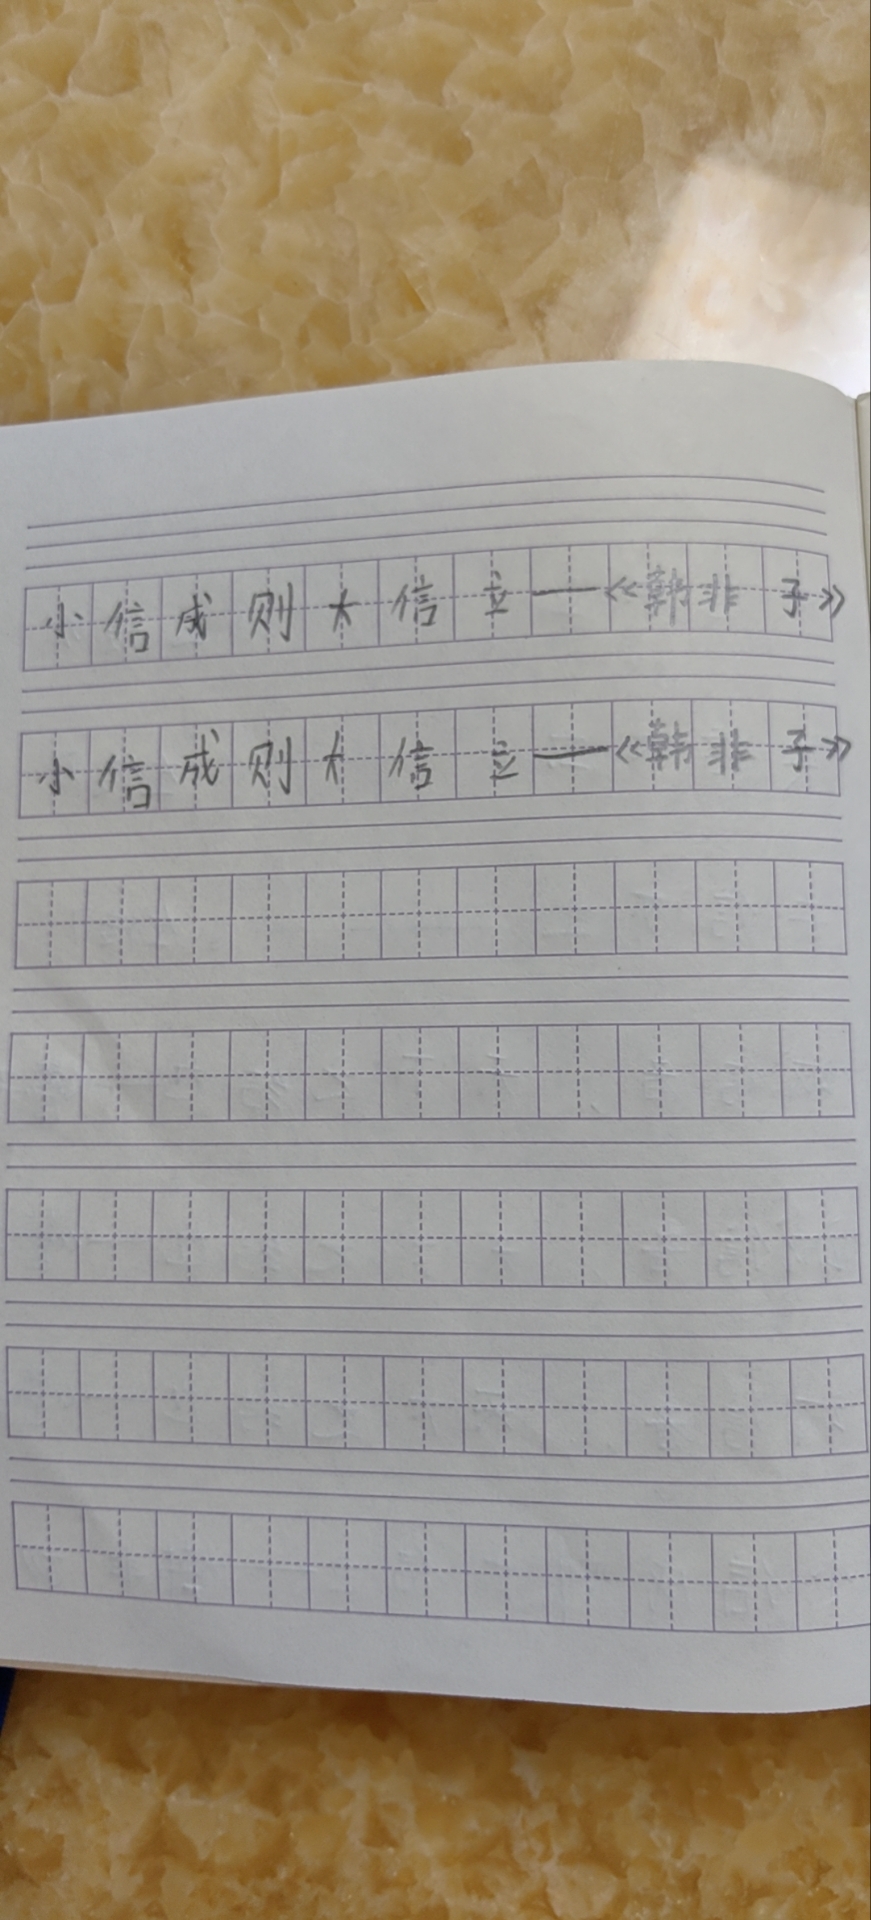 小信成则大信立—《韩非子》
小信成则大信立—《韩非子》